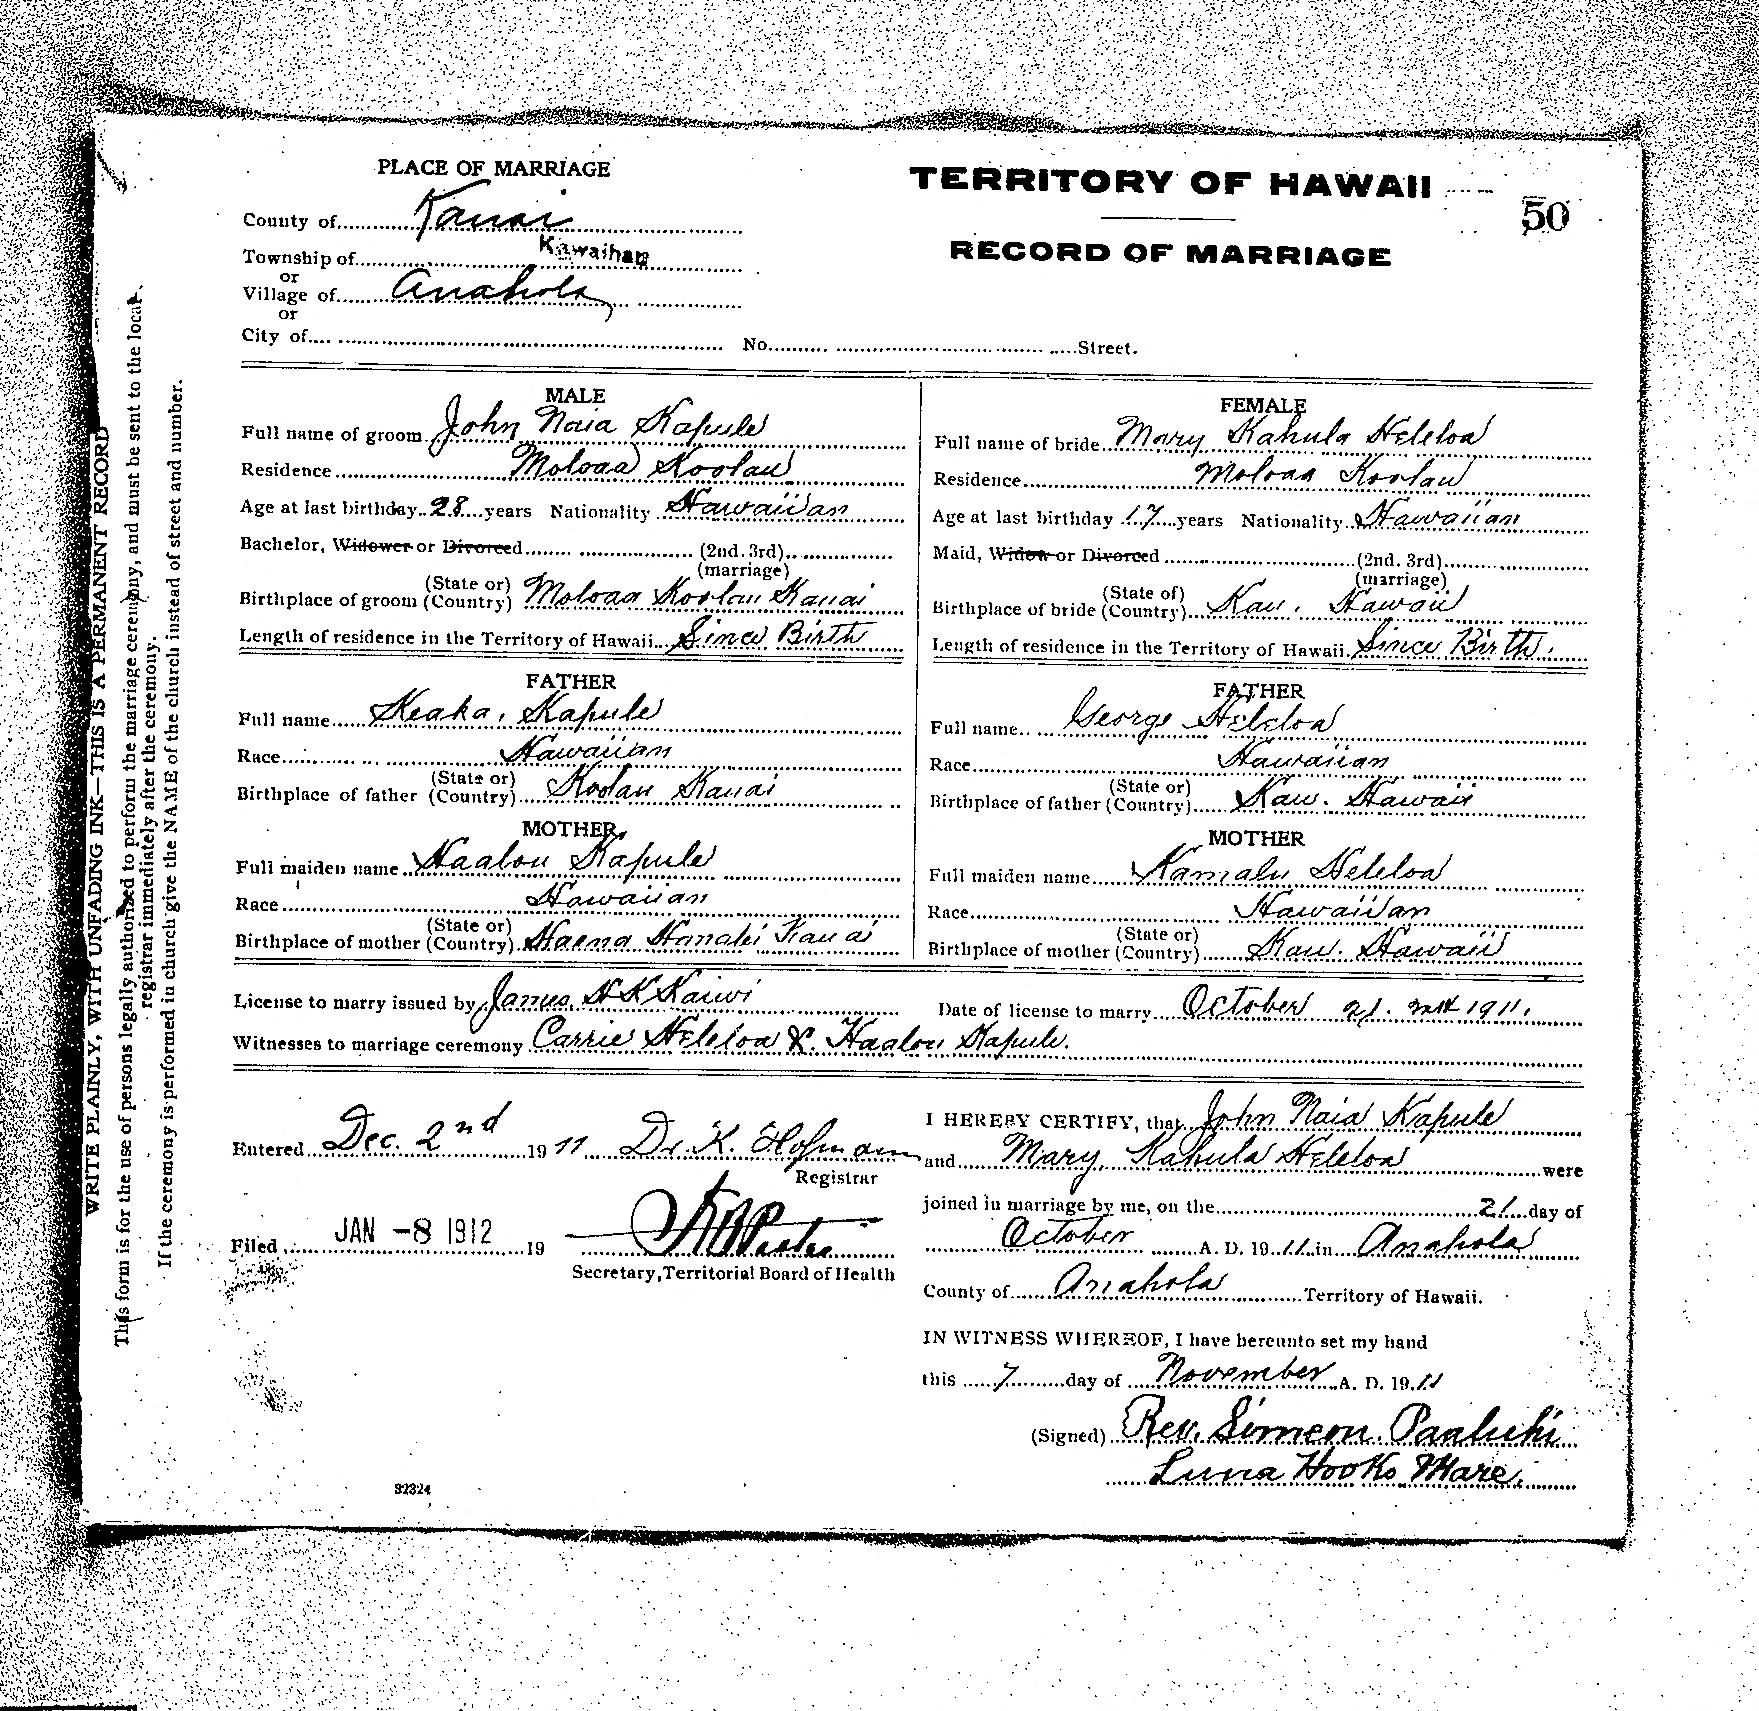 PLACE OF MARRIAGE
TERRITORY OF HAWAII
50
County of Kauai
RECORD OF MARRIAGE
Township of Kawaihau
or
Village of Anahola
or
City of No. Street.
MALE
Full name of groom John Naia Kapule
Residence Moloaa Koolau
Age at last birthday 28 years Nationality Hawaiian
Bachelor, Widower or Divorced (2nd. 3rd)
(marriage)
Birthplace of groom (State or) (Country) Moloaa Koolau Kauai
Length of residence in the Territory of Hawaii Since Birth
FATHER
Full name Keaka, Kapule
Race Hawaiian
Birthplace of father (State or) (Country) Koolau Kauai
MOTHER
Full maiden name Haalou Kapule
Race Hawaiian
Birthplace of mother (State or) (Country) Haena Hanalei Kauai
FEMALE
Full name of bride Mary Kahula Heleloa
Residence Moloaa Koolau
Age at last birthday 17 years Nationality Hawaiian
Maid, Widow or Divorced (2nd. 3rd)
(marriage)
Birthplace of bride (State of) (Country) Kau. Hawaii
Length of residence in the Territory of Hawaii Since Birth.
FATHER
Full name George Heleloa
Race Hawaiian
Birthplace of father (State or) (Country) Kau. Hawaii
MOTHER
Full maiden name Kamalu Heleloa
Race Hawaiian
Birthplace of mother (State or) (Country) Kau. Hawaii
License to marry issued by James H K Kaiwi Date of license to marry October 21. 1911.
Witnesses to marriage ceremony Carrie Heleloa &. Haalou Kapule.
Entered Dec. 2nd 1911 Dr K. Hofmann
Registrar
Filed JAN -8 1912 19
Secretary, Territorial Board of Health
32324
I HEREBY CERTIFY, that John Naia Kapule
and Mary Kahula Heleloa were
joined in marriage by me, on the 21 day of
October A. D. 1911 in Anahola
County of Anahola Territory of Hawaii.
IN WITNESS WHEREOF, I have hereunto set my hand
this 7 day of November A. D. 1911
(Signed) Rev. Simeon. Paaluhi
Luna Hooko Mare.
WRITE PLAINLY, WITH UNFADING INK—THIS IS A PERMANENT RECORD
This form is for the use of persons legally authorized to perform the marriage ceremony, and must be sent to the local
registrar immediately after the ceremony.
If the ceremony is performed in church give the NAME of the church instead of street and number.